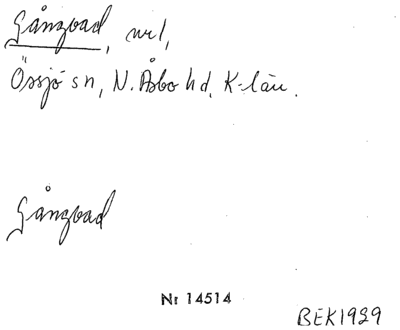 Gångvad, vel,
Össjö sn, N. Åsbo hd, K-län.
Gångvad
Nr 14514
BEK1929